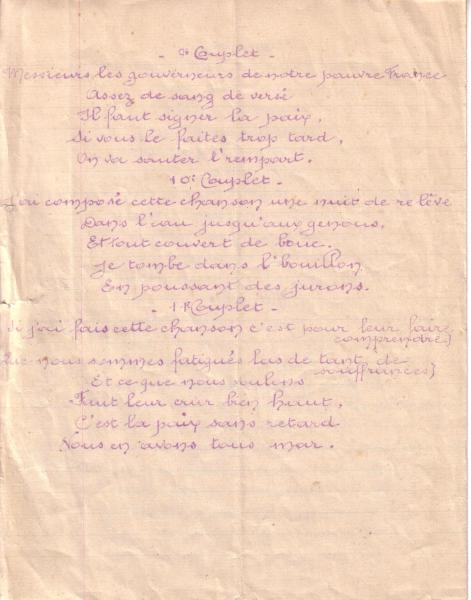 - 9e Couplet -
Messieurs les gouverneurs de notre pauvre France
Assez de sang de versé
Il faut signer la paix,
Si vous le faites trop tard,
On va sauter l'rempart.
10e Couplet -
J'ai composé cette chanson une nuit de relève
Dans l'eau jusqu'aux genous,
Et tout couvert de boue.
Je tombe dans l'bouillon
En poussant des jurons.
- 11e Couplet -
Si j'ai fais cette chanson c'est pour leur faire
comprendre}
Que nous sommes fatigués las de tant de
souffrances}
Et ce que nous voulons
Faut leur crier bien haut,
C'est la paix sans retard
Nous en avons tous mar.